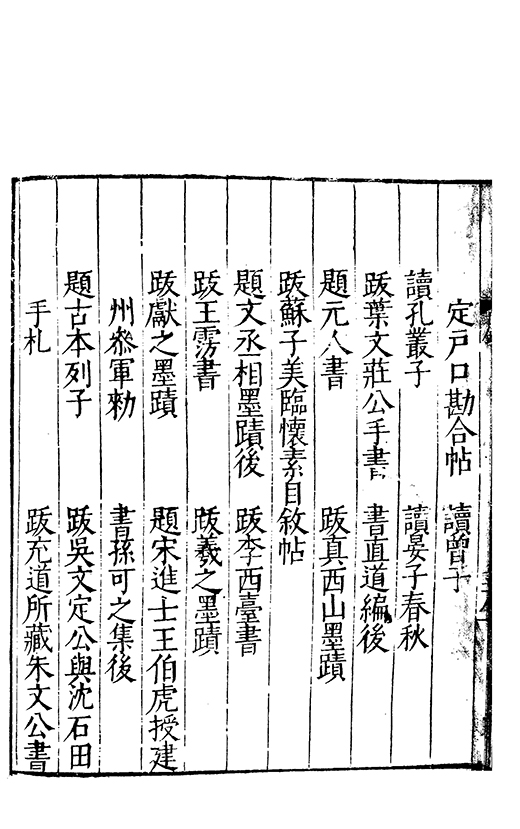 定戶口勘合帖　讀曾子
讀孔叢子　讀晏子春秋
跋葉文莊公手書　書直道編後
題元人書　跋真西山墨蹟
跋蘇子美臨懷素自敘帖
題文丞相墨蹟後　跋李西臺書
跋王雱書　跋羲之墨蹟
跋獻之墨蹟　題宋進士王伯虎授建
州叅軍勑　書孫可之集後
題古本列子　跋吳文定公與沈石田
手札　跋充道所藏朱文公書